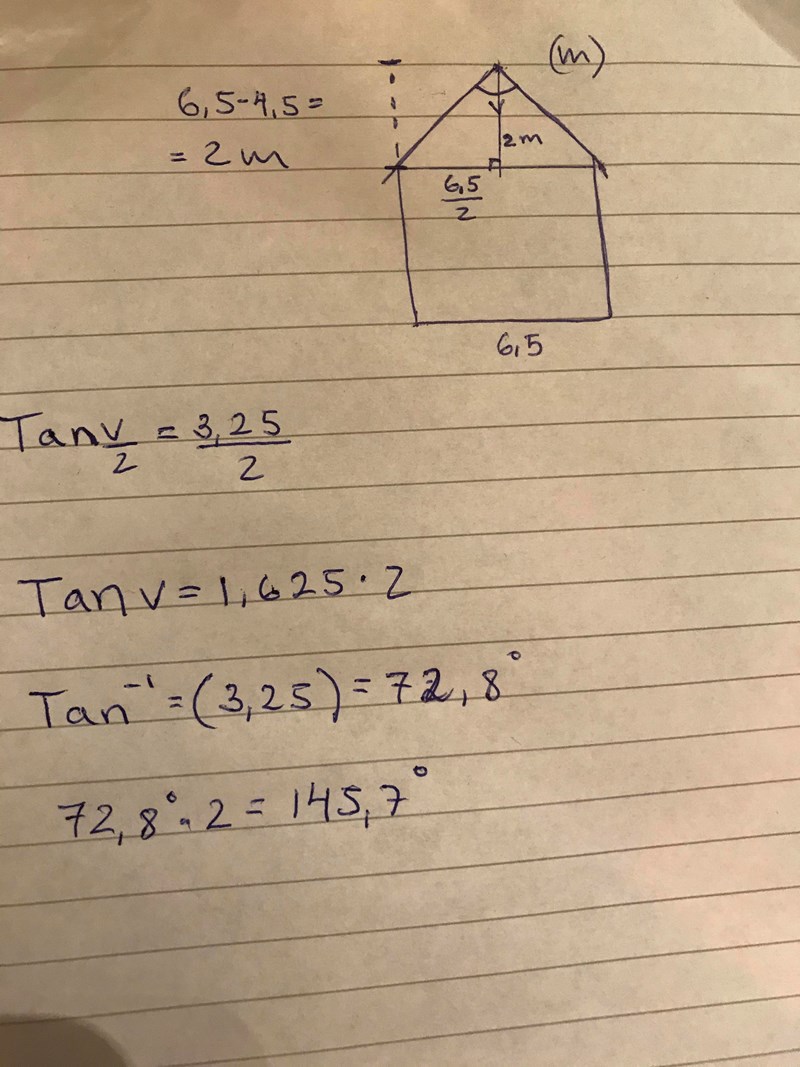 (m)
6,5-4,5=
= 2m
2m
6,5
2
6,5
Tan v/2 = 3,25/2
Tan v = 1,625 · 2
Tan⁻¹ = (3,25) = 72,8°
72,8° · 2 = 145,7°